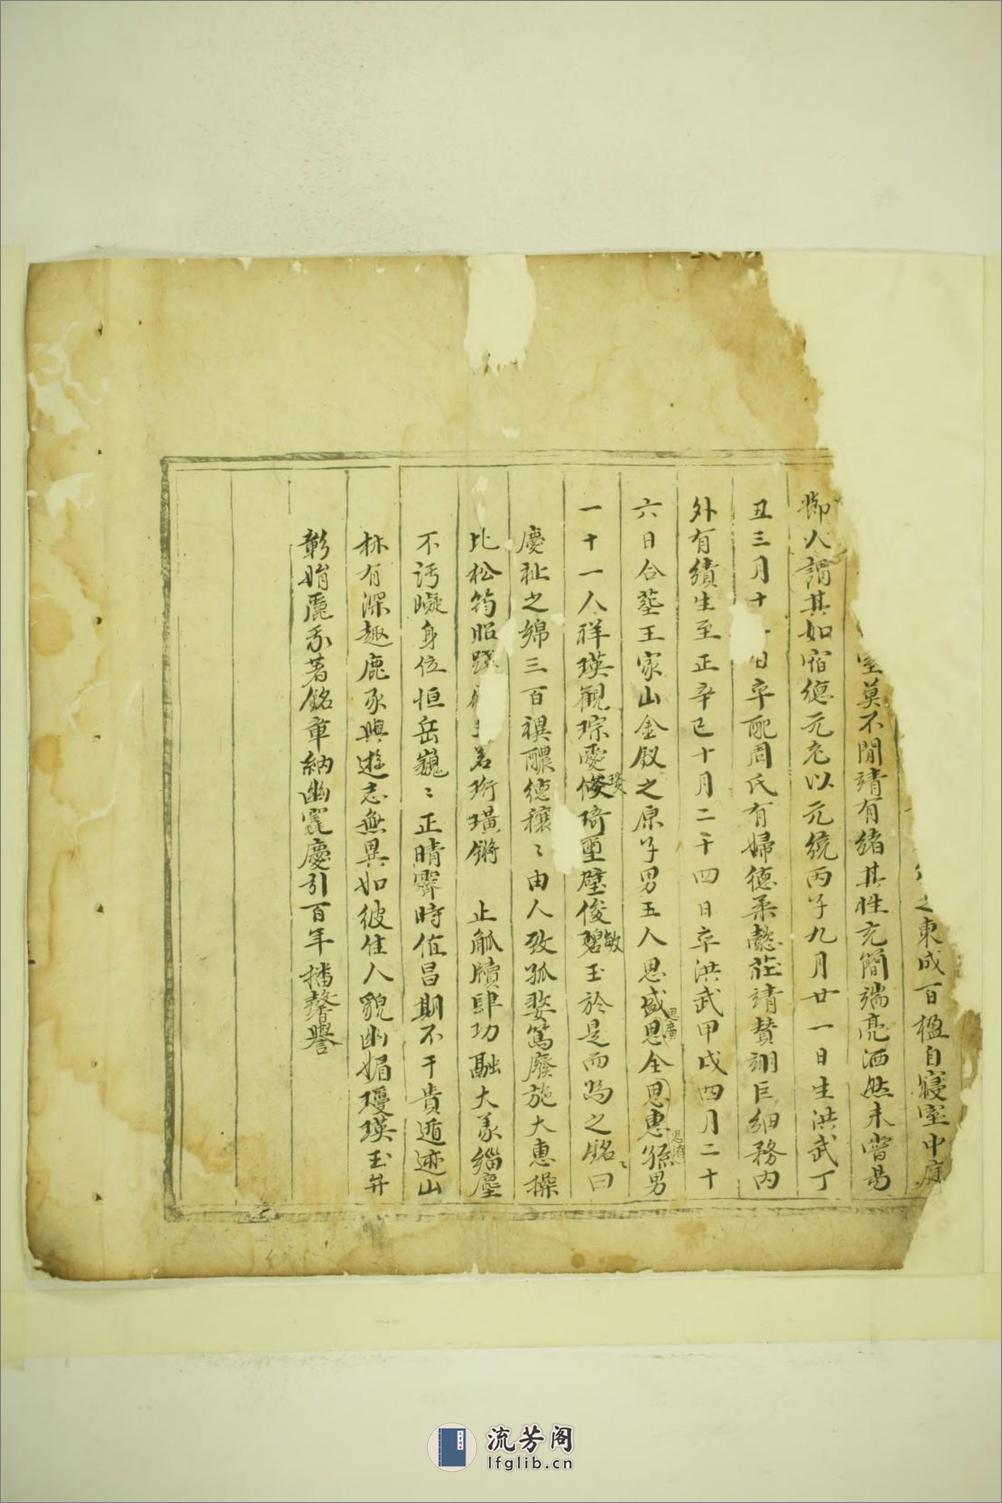 之東成百楹自寢室中庭
室莫不閒靖有緒其性充簡端亮洒然未嘗易
御人謂其如宿德元充以元統丙子九月廿一日生洪武丁
丑三月十 日卒配周氏有婦德柔懿莊靖贊翊巨細務內
外有績生至正辛巳十月二十四日卒洪武甲戌四月二十
六日合塟王家山金釵之原子男五人思盛思全思惠孫男
一十一人祥瑛觀琮愛俊琦璽璧俊碧玉於是而為之銘曰
慶祉之綿三百禩醲德穰〻由人致孤婺篤廢施大惠操
比松筠昭 若珩璜鏘 止觚牘肆功融大羕緇塵
不汚嶷身位恒岳巍〻正晴霽時值昌期不干貴遁迹山
林有深趣鹿豕與遊志無異如彼佳人貌幽媚瓊瑛玉并
彰娟麗豕著銘章納幽窀慶引百年播馨譽
流芳阁
lfglib.cn